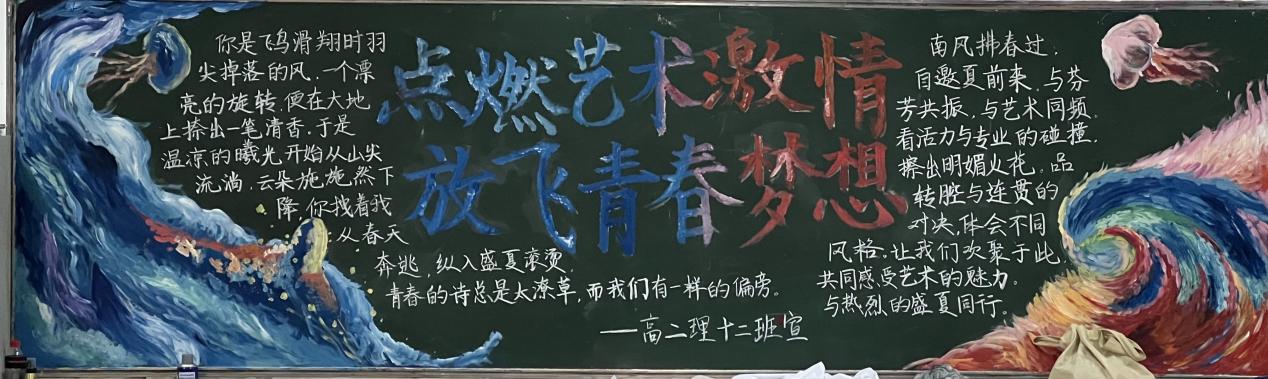 点燃艺术激情
放飞青春梦想
你是飞鸟滑翔时羽
尖掉落的风.一个漂
亮的旋转.便在大地
上擦出一笔清香.于是
温凉的曦光开始从山尖
流淌.云朵施施然下
降.你拽着我
从春天
奔逃,纵入盛夏滚烫.
青春的诗总是太潦草,而我们有一样的偏旁。
——高二理十二班宣
南风拂春过,
自邀夏前来.与芬
芳共振,与艺术同频。
看活力与专业的碰撞,
擦出明媚火花。品
转腔与连贯的
对决,体会不同
风格.让我们欢聚于此,
共同感受艺术的魅力。
与热烈的盛夏同行。